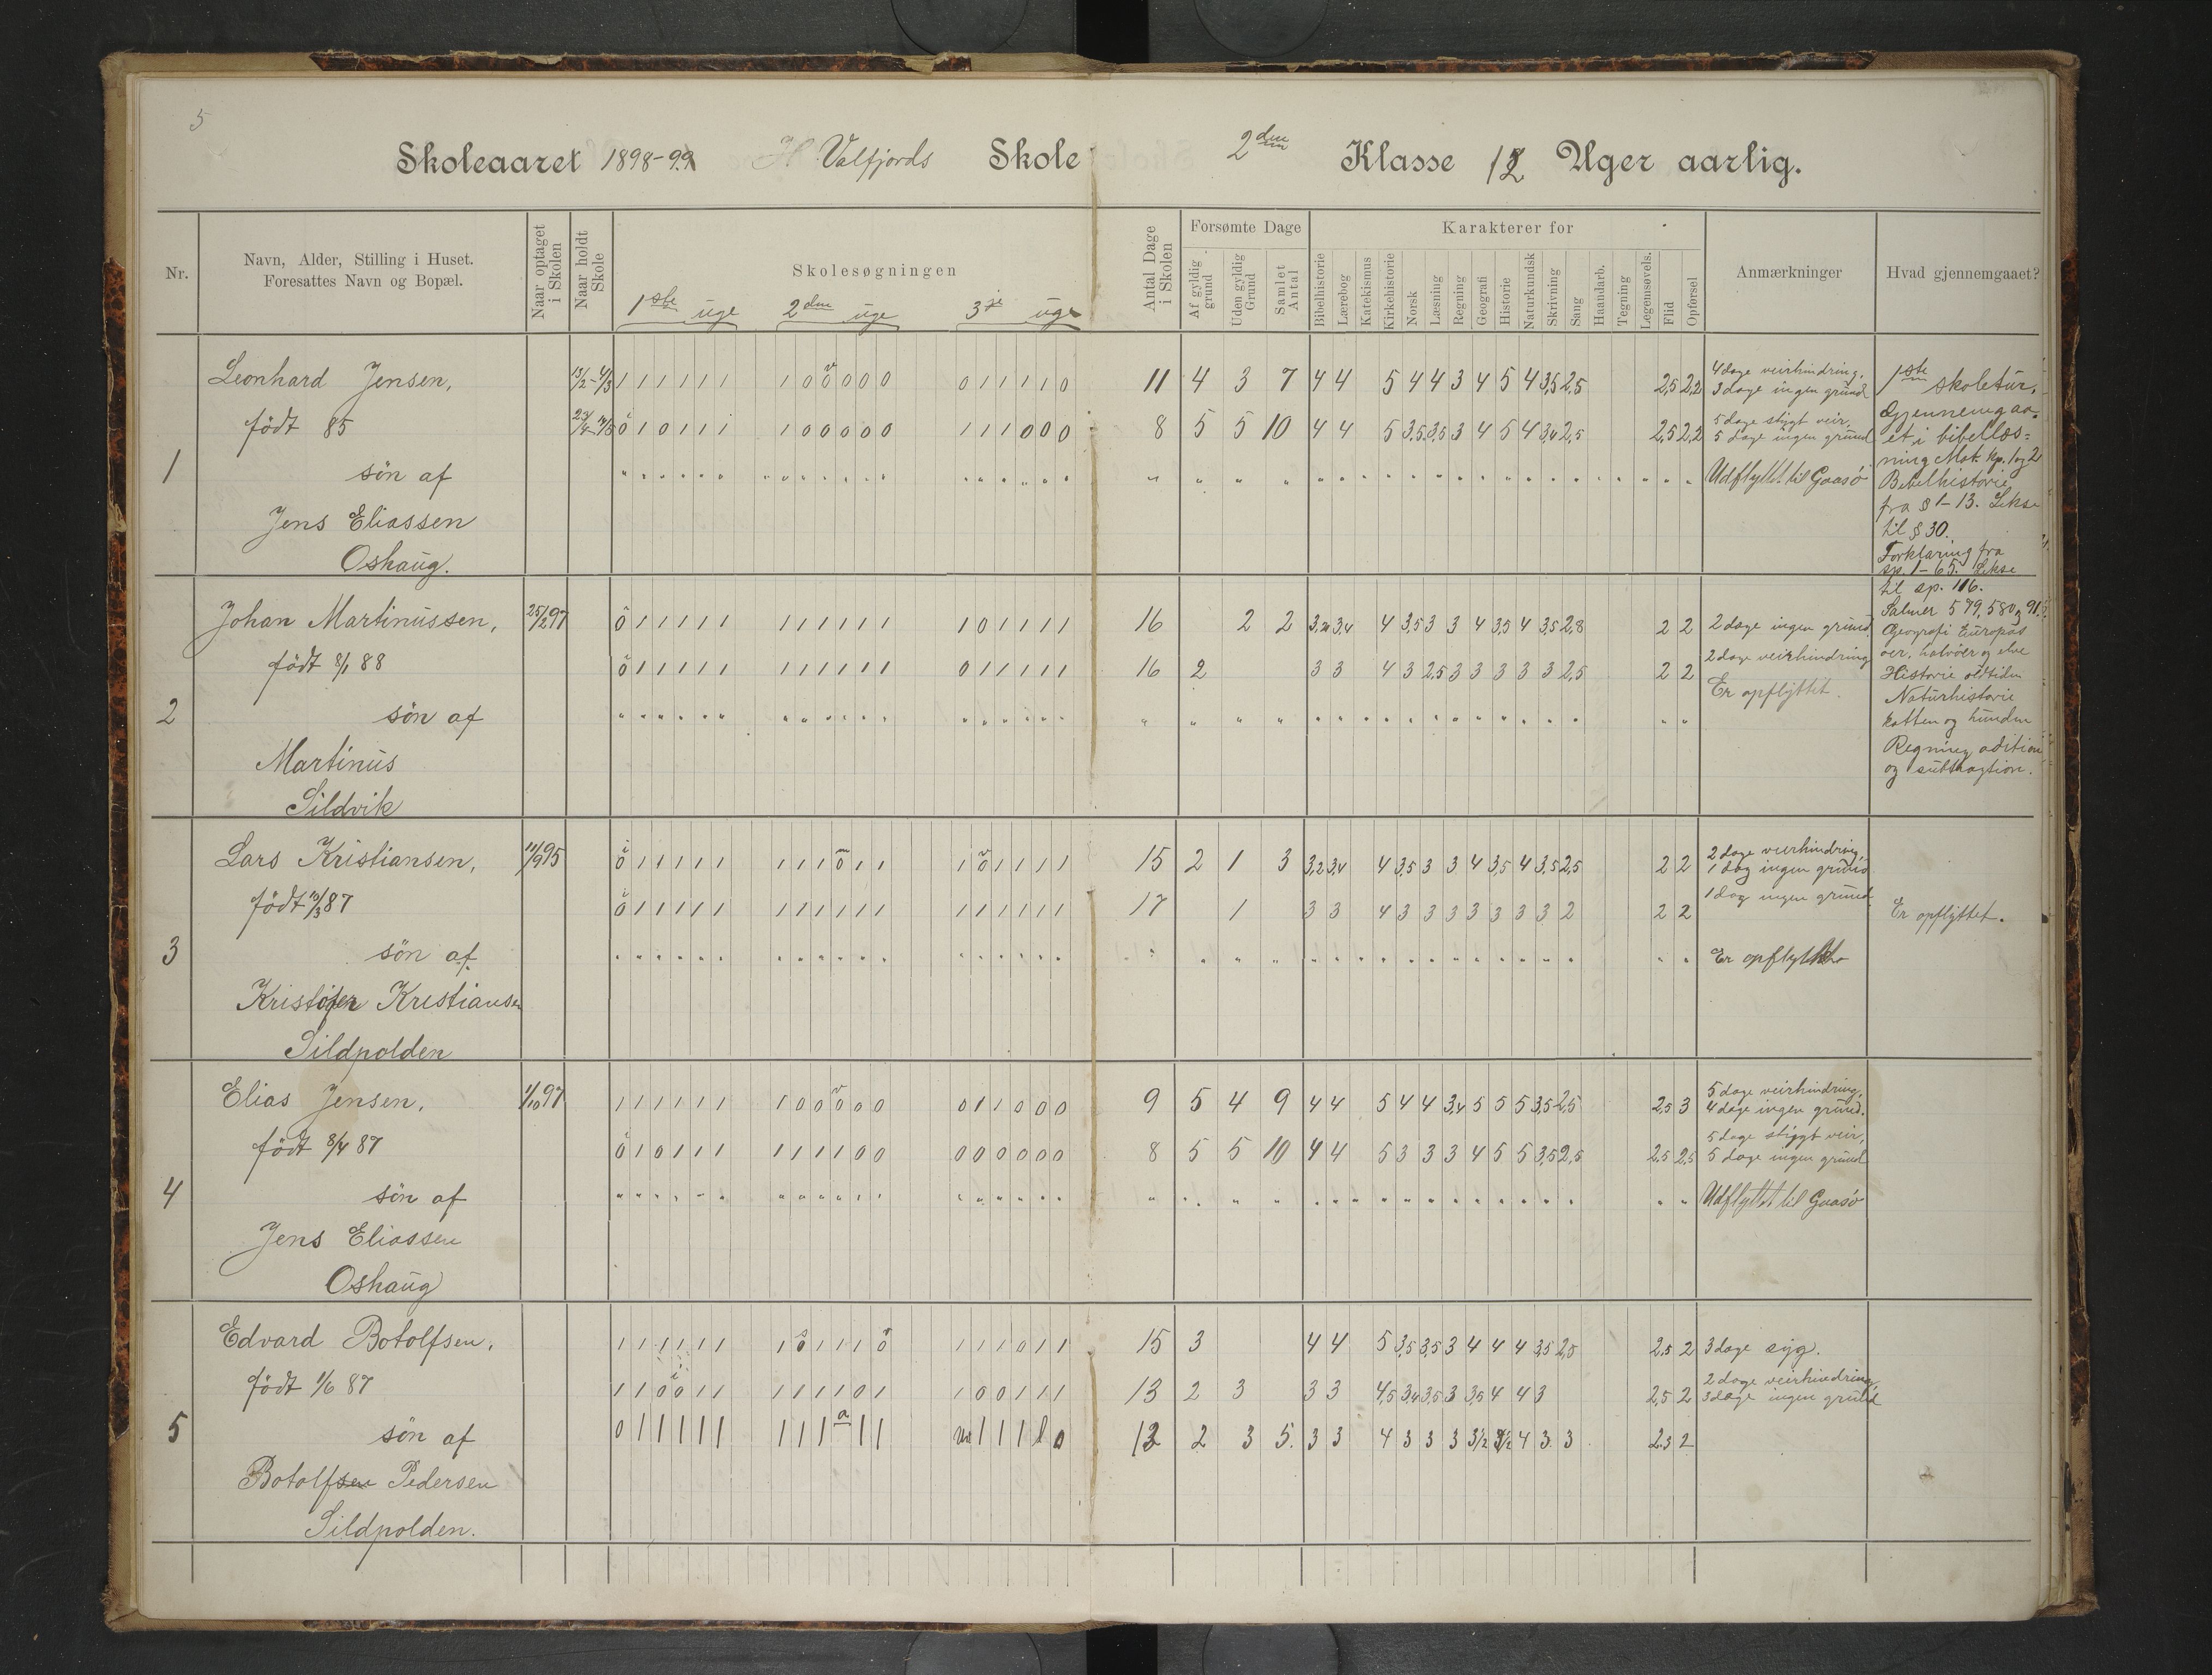 5
Skoleaaret 1898-99 H Valfjords Skole 2den Klasse 12 Uger aarlig.
Nr.
Navn, Alder, Stilling i Huset.
Foresattes Navn og Bopæl.
Naar optaget i Skolen
Naar holdt Skole
Skolesøgningen
1ste uge 2den uge 3je uge
Antal Dage i Skolen
Forsømte Dage
Af gyldig grund
Uden gyldig Grund
Samlet Antal
Karakterer for
Bibelhistorie
Lærebog
Katekismus
Kirkehistorie
Norsk
Læsning
Regning
Geografi
Historie
Naturkundsk
Skrivning
Sang
Haandarb.
Tegning
Legemsøvels.
Flid
Opførsel
Anmærkninger
Hvad gjennemgaaet?
1
Leonhard Jensen, 13/2-4/3 1 1 1 1 1 1 1 0 0 0 0 0 0 1 1 1 1 0 11 4 3 7 4 4 5 4 4 3 4 5 4 3,5 2,5 2,5 2,2
4 dage veirhindring,
3 dage ingen grund
født 85 0 1 0 1 1 1 1 0 0 0 0 0 1 1 1 0 0 0 8 5 5 10 4 4 5 3,5 3,5 3 4 5 4 3,4 2,5 2,5 2,2
5 dage stygt veir,
5 dage ingen grund
søn af Udflyttet til Gaasø
Jens Eliassen
Oshaug.
1ste skoletur.
Gjennemgaa-
et i bibellæs=
ning Mat. kp. 1 og 2
Bibelhistorie
fra § 1-13. Lekse
til § 30.
Forklaring fra
sp. 1-65. Lekse
til sp. 116.
Salmer 579, 580, 91.
Geografi Europas
øer, halvøer og elve
Historie oldtiden
Naturhistorie
katten og hunden
Regning adition
og subtragtion.
2
Johan Martinussen, 25/2 97 0 1 1 1 1 1 1 1 1 1 1 1 1 0 1 1 1 1 16 2 2 4 3,5 3 3 4 3,5 4 3,5 2,8 2 2
2 dage ingen grund.
født 8/1 88 0 1 1 1 1 1 1 1 1 1 1 1 0 1 1 1 1 1 16 2 3 3 4 3 2,5 3 3 3 3 3 2,5 2 2
2 dage veirhindring
Er opflyttet.
søn af
Martinus
Sildvik
3
Lars Kristiansen, 11/9 95 0 1 1 1 1 1 1 1 1 0 1 1 1 0 1 1 1 1 15 2 1 3 3,2 3,4 4 3,5 3 3 4 3,5 4 3,5 2,5 2 2
2 dage veirhindring,
1 dag ingen grund
født 10/3 87 0 1 1 1 1 1 1 1 1 1 1 1 1 1 1 1 1 1 17 1 3 3 4 3 3 3 3 3 3 3 2 2 2
1 dag ingen grund.
Er opflyttet.
søn af
Kristofer Kristiansen
Sildpolden
4
Elias Jensen, 1/10 97 1 1 1 1 1 1 1 0 0 0 0 0 0 1 1 0 0 0 9 5 4 9 4 4 5 4 4 3,4 5 5 5 3,5 2,5 2,5 3
5 dage veirhindring,
4 dage ingen grund.
født 8/4 87 0 1 0 1 1 1 1 1 1 1 0 0 0 0 0 0 0 0 8 5 5 10 4 4 5 3 3 3 4 5 5 3,5 2,5 2,5 2,5
5 dage stygt veir,
5 dage ingen grund
søn af Udflyttet til Gaasø
Jens Eliassen
Oshaug
5
Edvard Botolfsen, 1 1 1 1 1 1 1 0 1 1 1 0 1 1 1 0 1 1 15 3 4 4 5 3,5 3,5 3 4 4 4 3,5 2,5 2,5 2 3 dage syg.
født 1/6 87 1 1 0 0 1 1 1 1 1 1 0 1 1 0 0 1 1 1 13 2 3 3 3 4,5 3,4 3,5 3 3,5 4 4 3 2,5 2
2 dage veirhindring,
3 dage ingen grund
søn af 0 1 1 1 1 1 1 1 1 a 1 1 1 1 1 0 2 3 5. 3 3 4 3 3 3 3 1/2 4 3 3 2.3 2
Botolfsen Pedersen
Sildpolden.